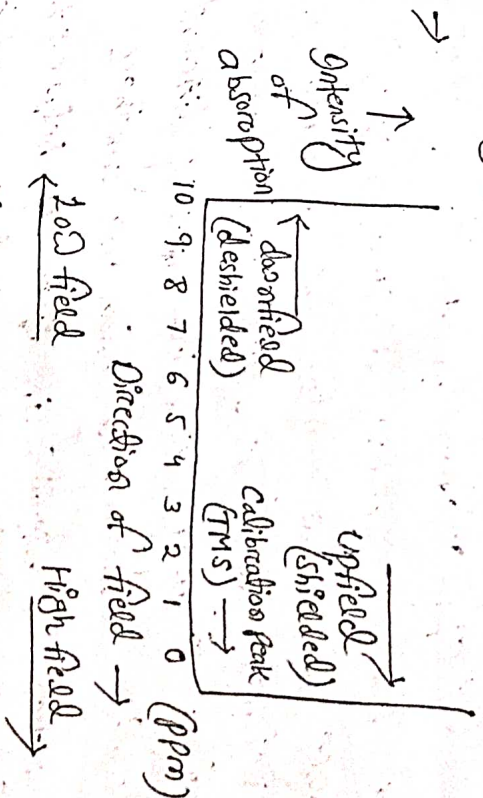 ↑
Intensity
of
absorption
downfield
(deshielded)
upfield
(shielded)
Calibration peak
(TMS) →
10 9 8 7 6 5 4 3 2 1 0 (PPm)
Direction of field →
Low field
High field